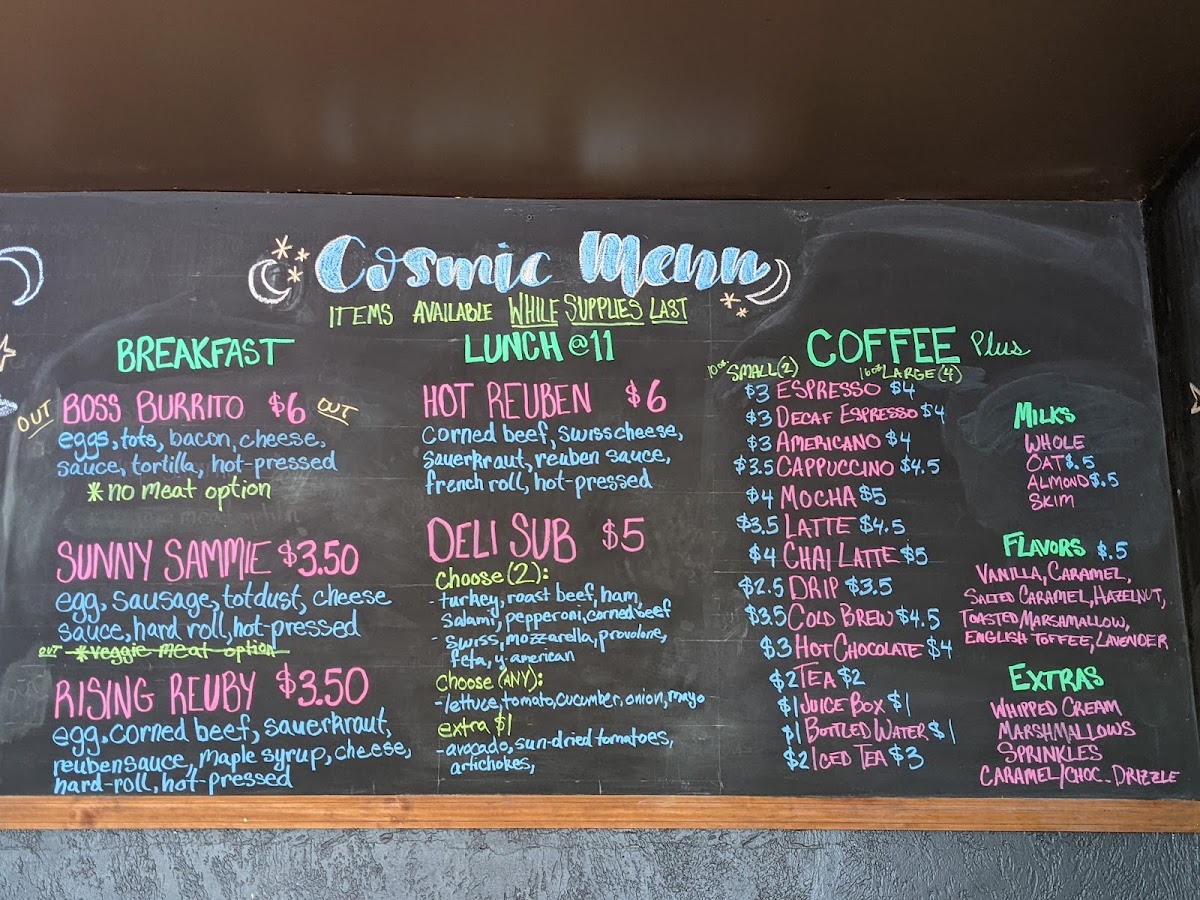 Cosmic Menu
ITEMS AVAILABLE WHILE SUPPLIES LAST
BREAKFAST
OUT BOSS BURRITO $6 OUT
eggs, tots, bacon, cheese,
sauce, tortilla, hot-pressed
*no meat option
SUNNY SAMMIE $3.50
egg, sausage, totdust, cheese
sauce, hard roll, hot-pressed
OUT *veggie meat option
RISING REUBY $3.50
egg, corned beef, sauerkraut,
reuben sauce, maple syrup, cheese,
hard-roll, hot-pressed
LUNCH @ 11
HOT REUBEN $6
corned beef, swiss cheese,
sauerkraut, reuben sauce,
french roll, hot-pressed
DELI SUB $5
choose (2):
- turkey, roast beef, ham,
salami, pepperoni, corned beef
- swiss, mozzarella, provolone,
feta, y-american
choose (ANY):
- lettuce, tomato, cucumber, onion, mayo
extra $1
- avocado, sun-dried tomatoes,
artichokes,
COFFEE Plus
10oz. SMALL (2) 16oz LARGE (4)
$3 ESPRESSO $4
$3 DECAF ESPRESSO $4
$3 AMERICANO $4
$3.5 CAPPUCCINO $4.5
$4 MOCHA $5
$3.5 LATTE $4.5
$4 CHAI LATTE $5
$2.5 DRIP $3.5
$3.5 COLD BREW $4.5
$3 HOT CHOCOLATE $4
$2 TEA $2
$1 JUICE BOX $1
$1 BOTTLED WATER $1
$2 ICED TEA $3
MILKS
WHOLE
OAT $.5
ALMOND $.5
SKIM
FLAVORS $.5
VANILLA, CARAMEL,
SALTED CARAMEL, HAZELNUT,
TOASTED MARSHMALLOW,
ENGLISH TOFFEE, LAVENDER
EXTRAS
WHIPPED CREAM
MARSHMALLOWS
SPRINKLES
CARAMEL/CHOC. DRIZZLE